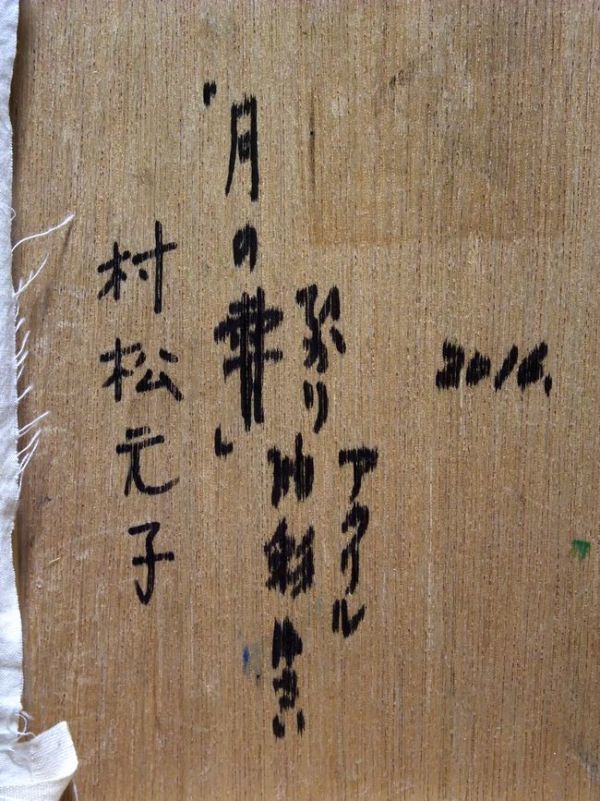 2016.
アクリル
油彩
「月の華」
村松元子